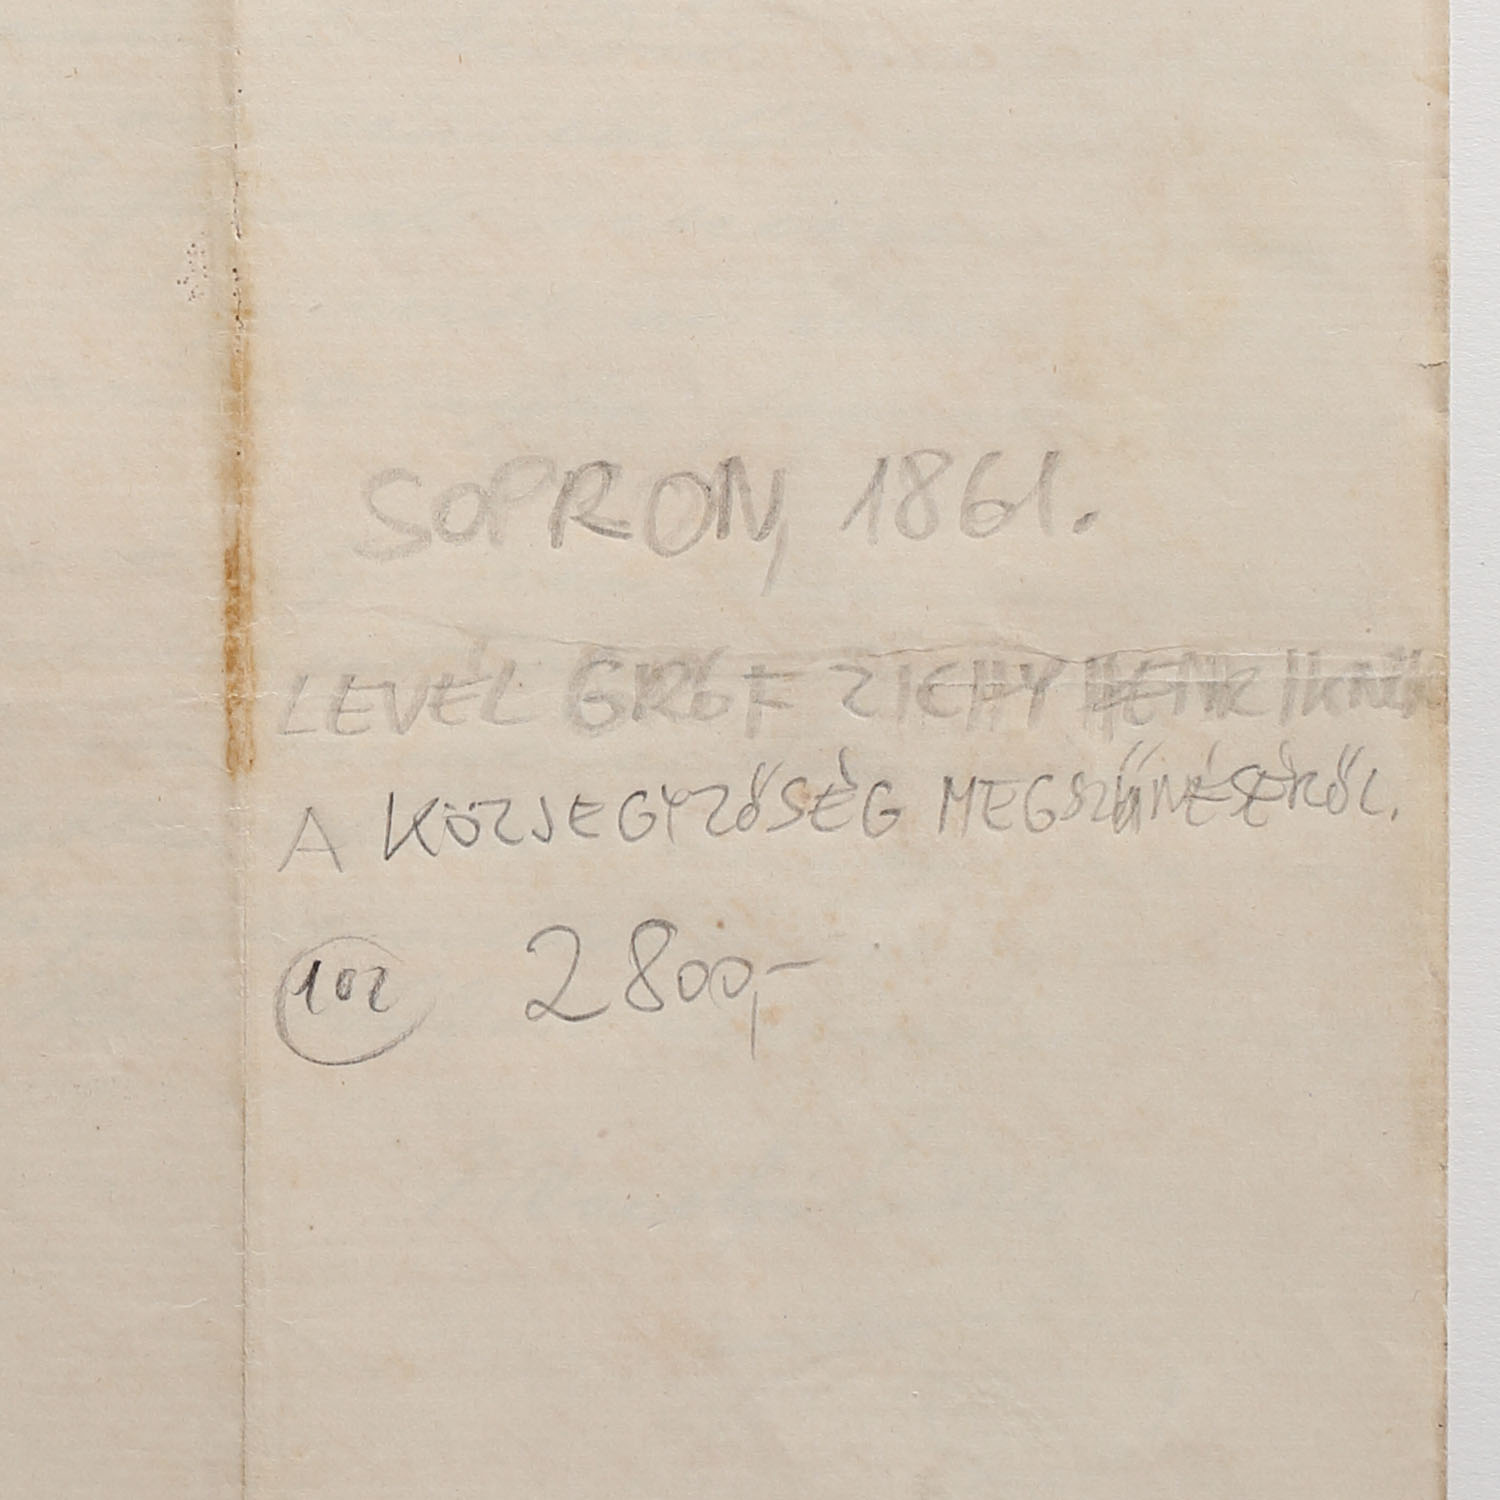 SOPRON, 1861.
LEVÉL GRÓF ZICHY HENRIKNEK
A KÖZJEGYZŐSÉG MEGSZŰNÉSÉRŐL.
102 2800,-